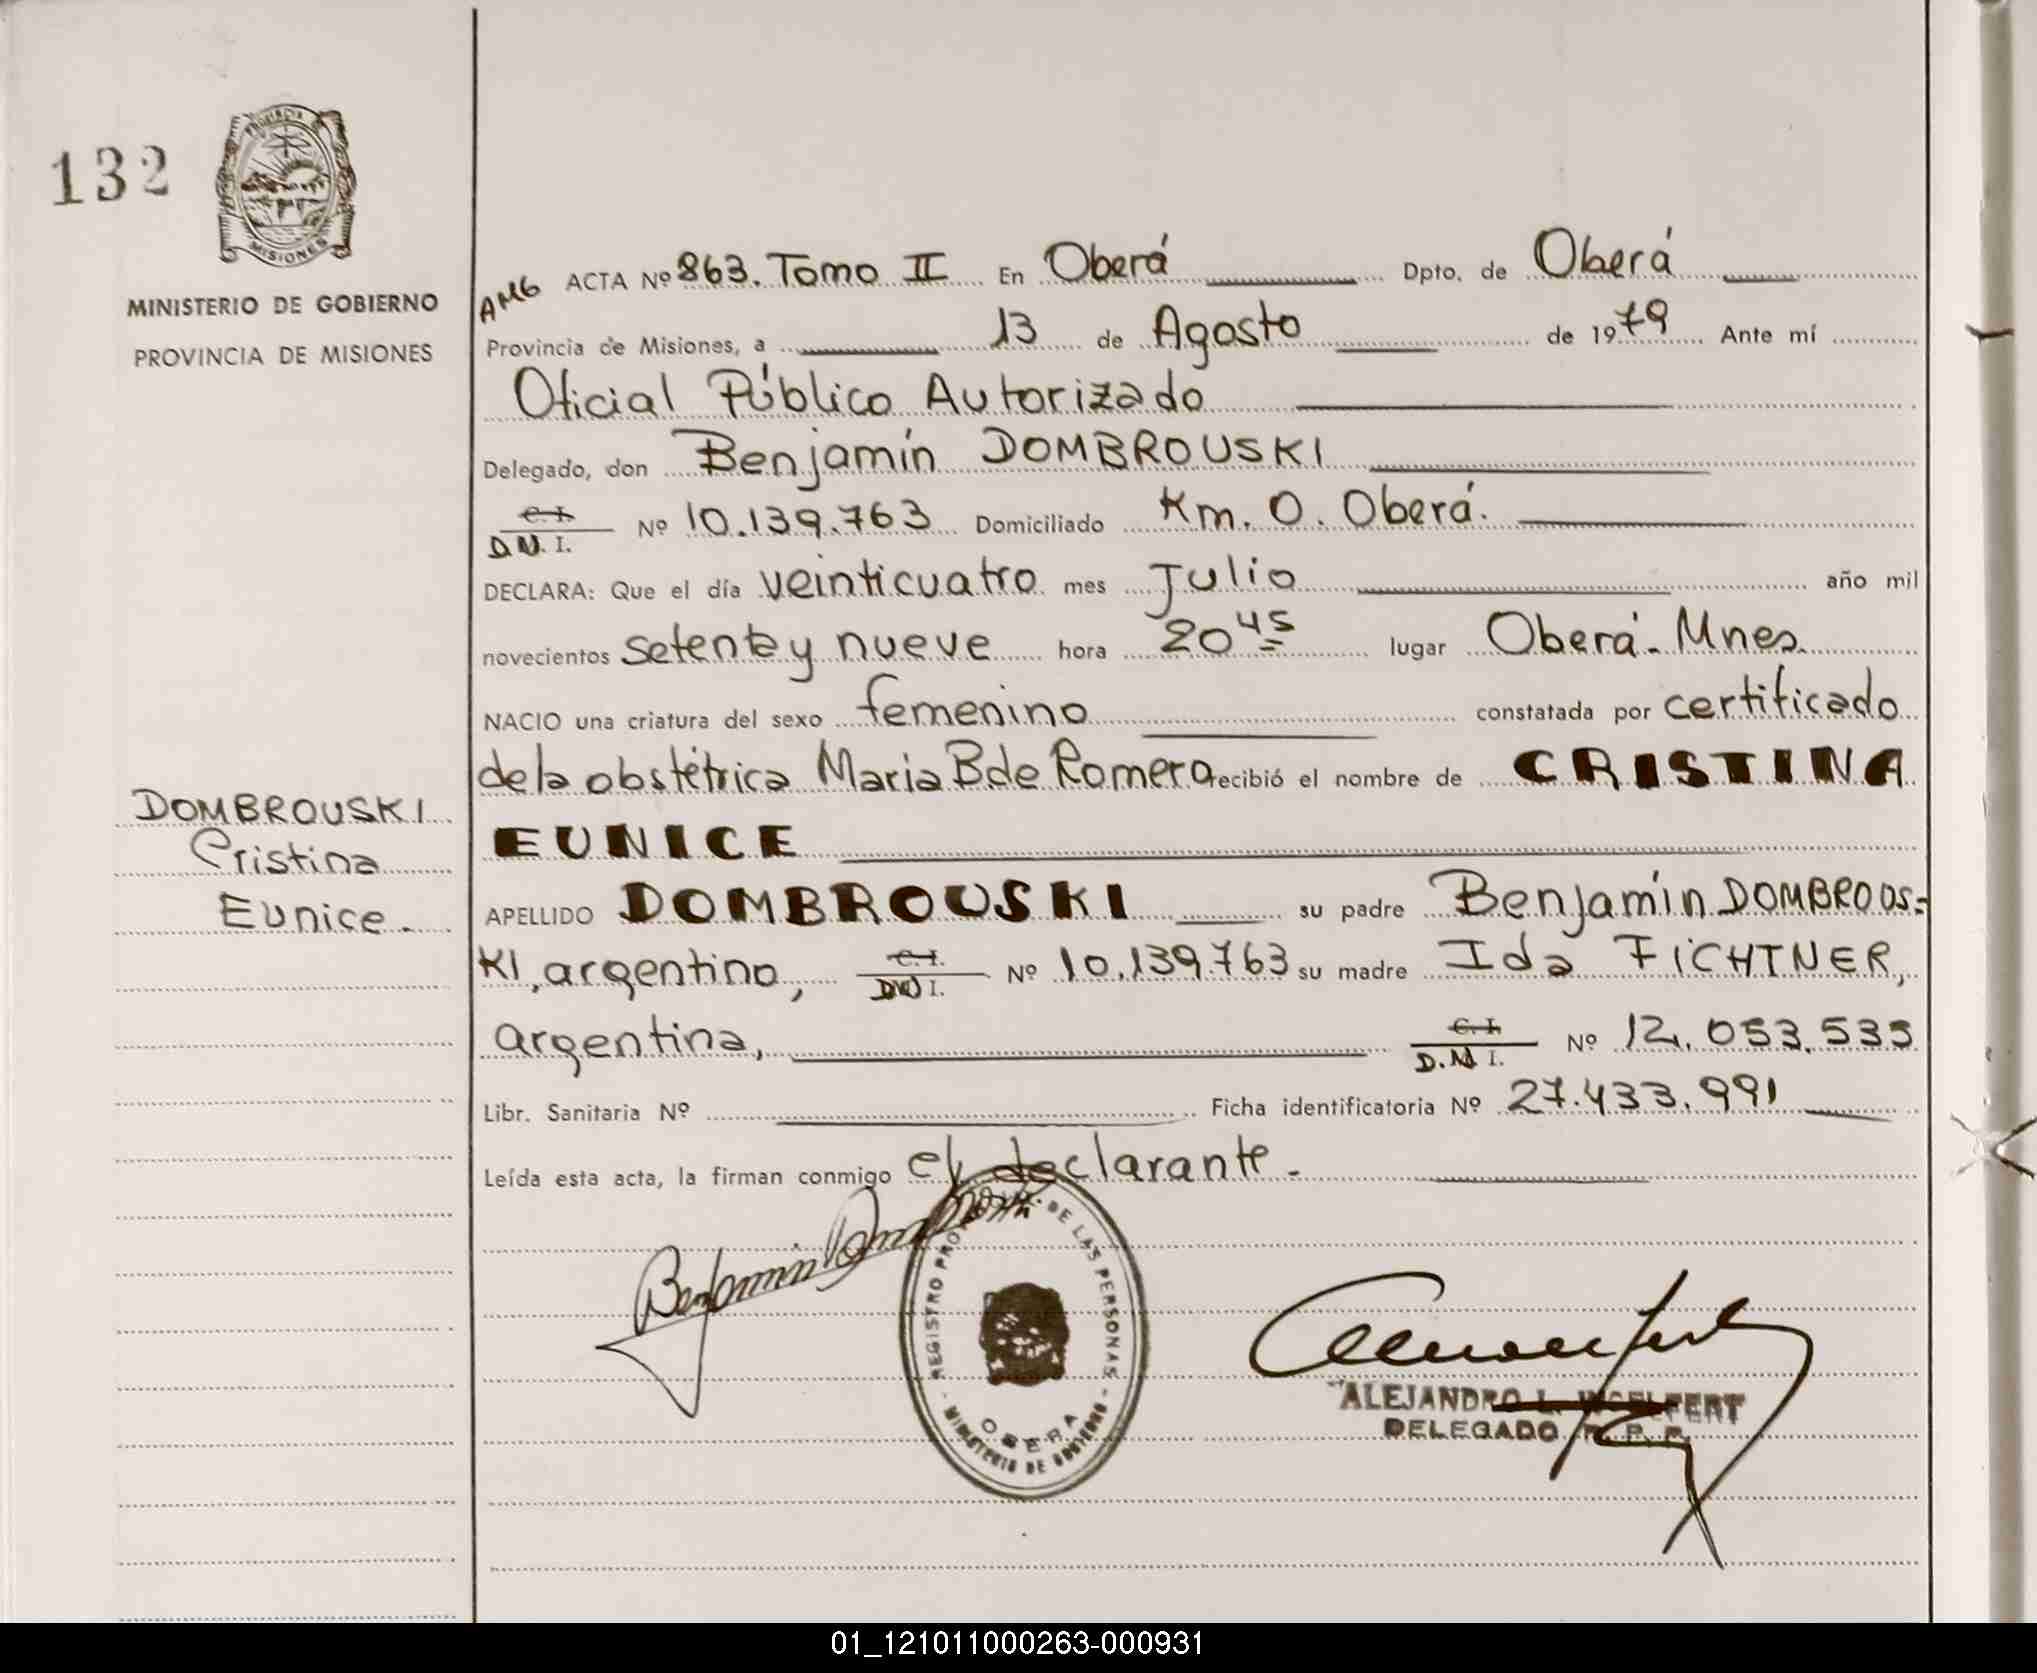 132
PROVINCIA
MISIONES
MINISTERIO DE GOBIERNO
PROVINCIA DE MISIONES
DOMBROUSKI
Cristina
Eunice.
AMG ACTA Nº 863. Tomo II En Oberá Dpto. de Oberá
Provincia de Misiones, a 13 de Agosto de 1979 Ante mí
Oficial Público Autorizado
Delegado, don Benjamín DOMBROUSKI
C. I.
D.N. I. Nº 10.139.763 Domiciliado Km. 0. Oberá.
DECLARA: Que el día veinticuatro mes Julio año mil
novecientos setenta y nueve hora 20 45 lugar Oberá. Mnes.
NACIO una criatura del sexo femenino constatada por certificado
de la obstétrica Maria B. de Romero recibió el nombre de CRISTINA
EUNICE
APELLIDO DOMBROUSKI su padre Benjamín DOMBROUS=
KI, argentino, C. I. D.N I. Nº 10.139.763 su madre Ida FICHTNER,
argentina, C. I. D.N I. Nº 12.053.535
Libr. Sanitaria Nº Ficha identificatoria Nº 27.433.991
Leída esta acta, la firman conmigo el declarante.
Benjamin Dombrouski
REGISTRO PROV. DE LAS PERSONAS
MINISTERIO DE GOBIERNO
OBERA
ALEJANDRO L. INGELFERT
DELEGADO R. P. P.
01_121011000263-000931